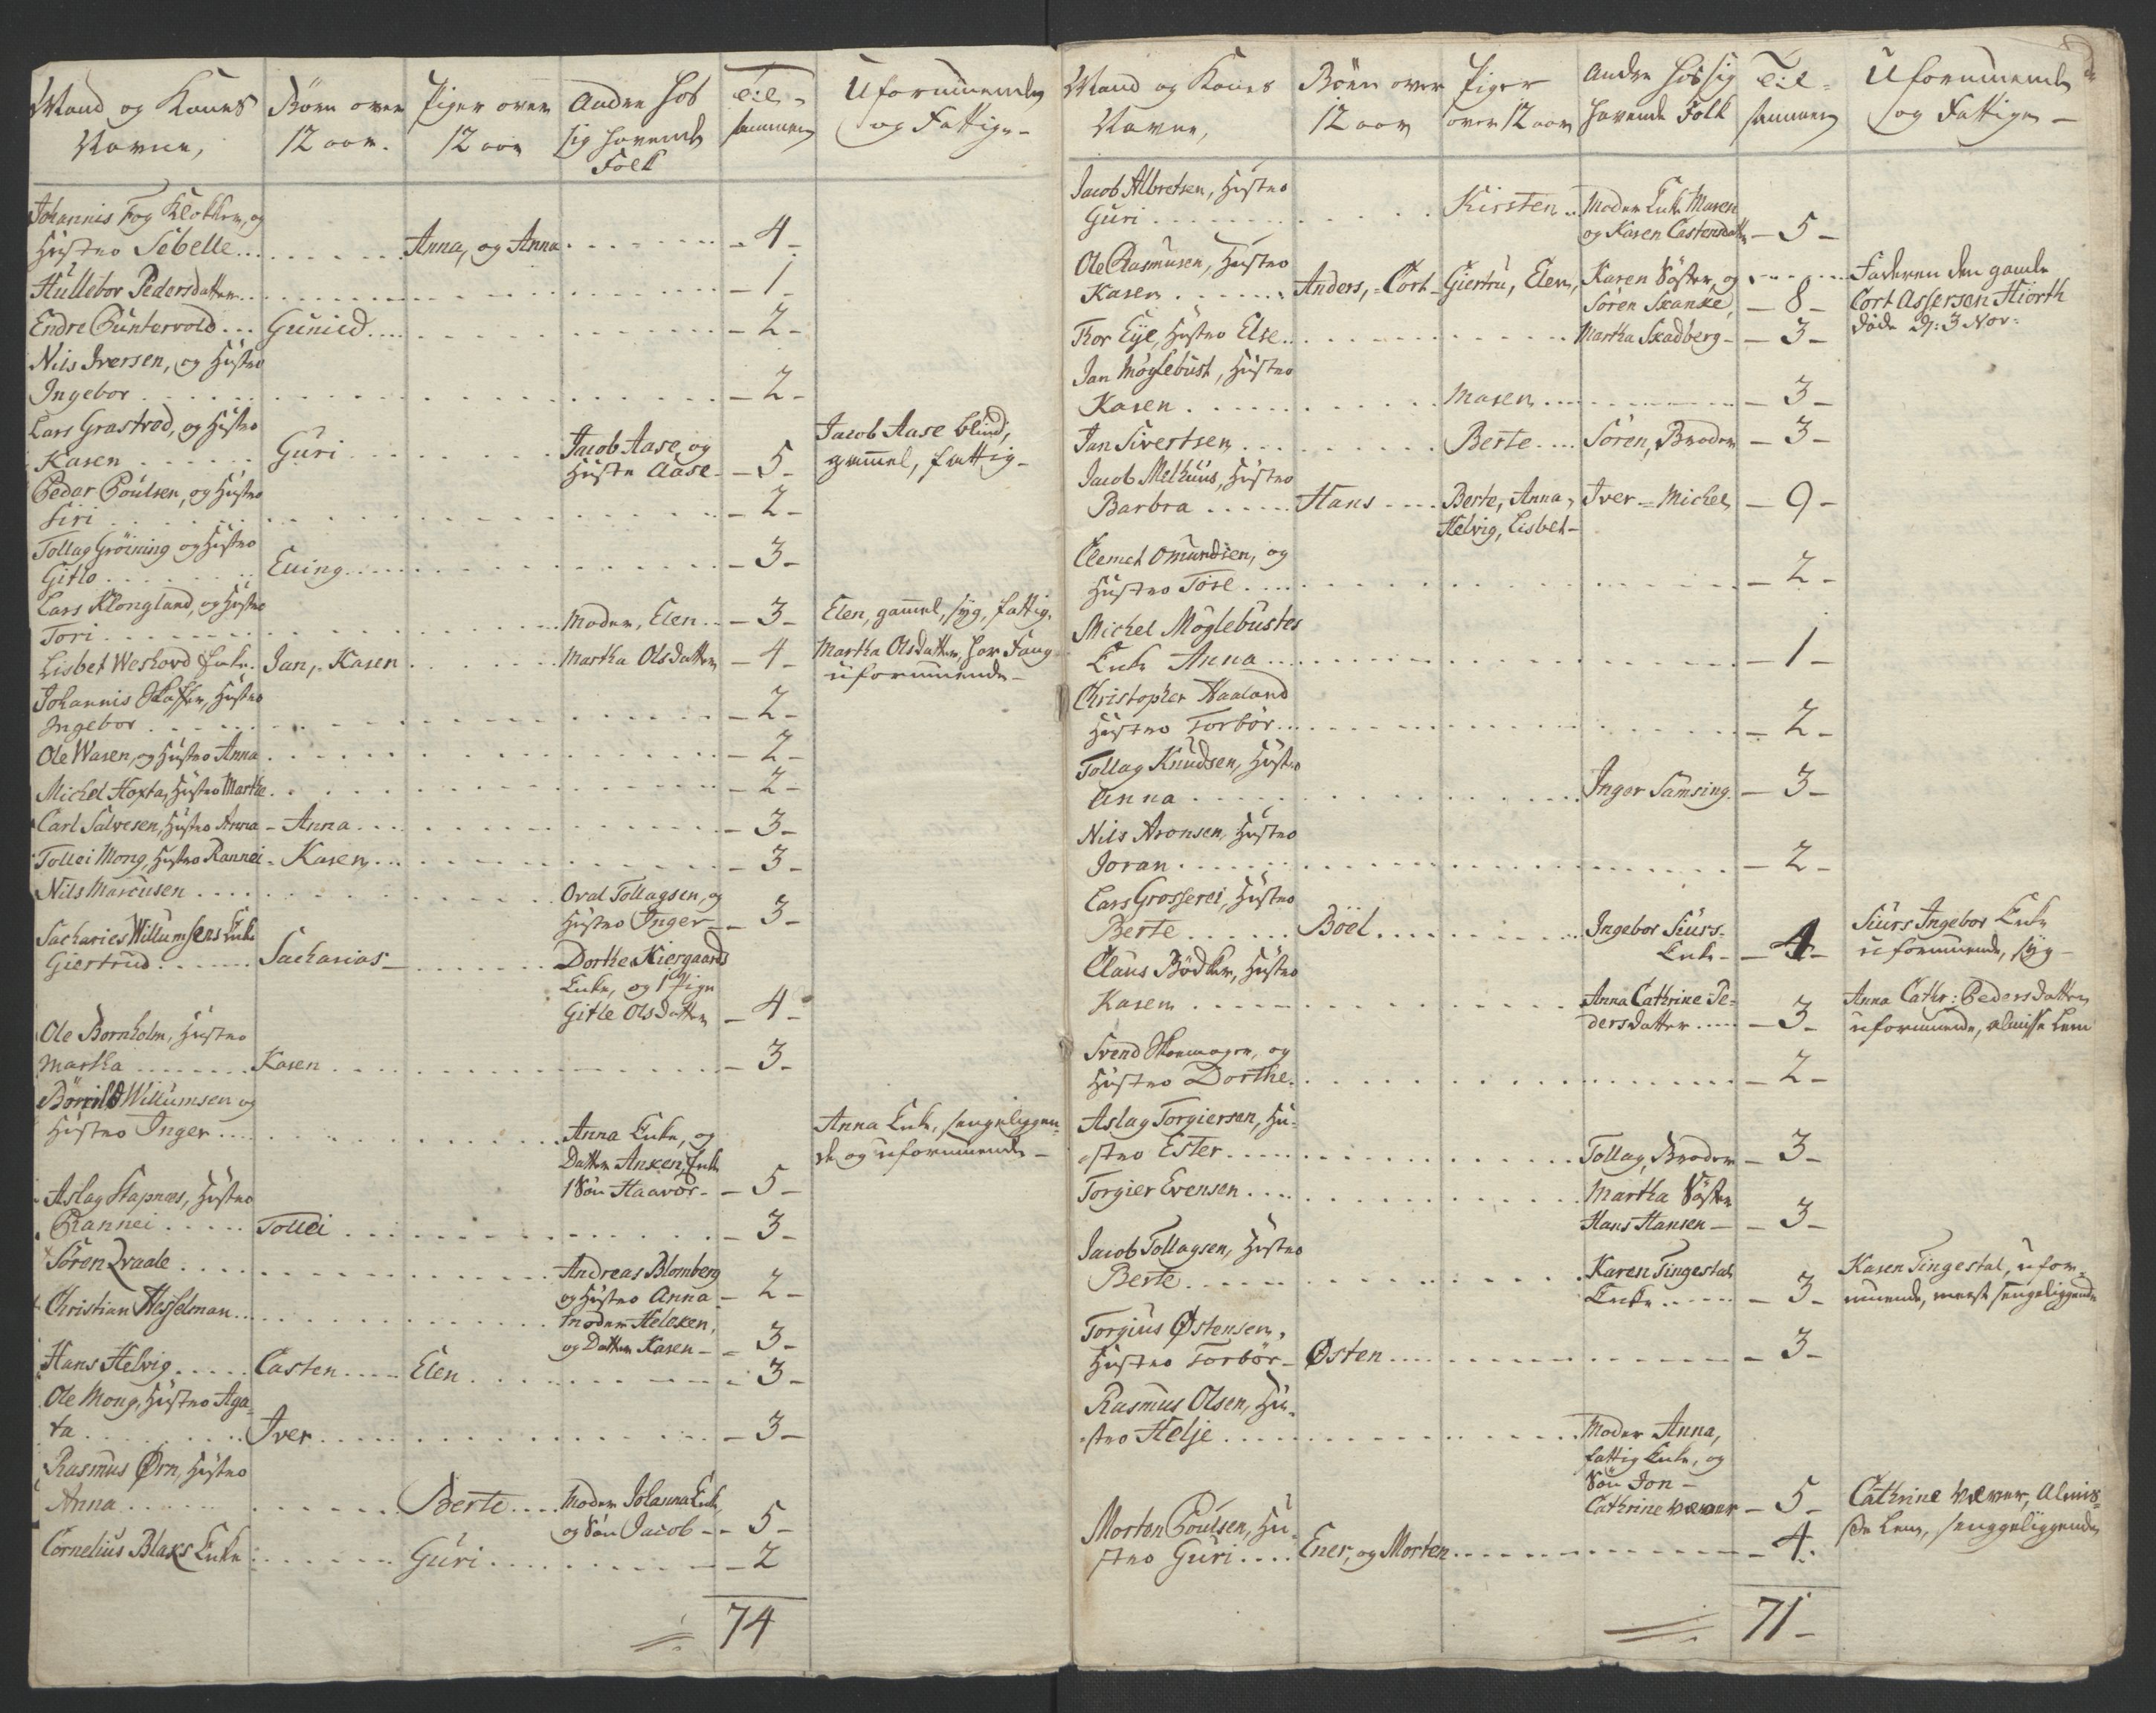 Mand og Kones Navne, Börn over 12 aar. Piger over 12 aar Andre hos sig havende Folk Til-sammen Uformuende og Fattige-
Johannis Fog Klokker, og
Hustro Sebelle... Anna, og Anna - 4 -
Hullebor Pedersdatter - 1 -
Endre Puntervold... Gunild - 2 -
Nils Iversen, og Hustro
Ingebor - 2 -
Lars Grastvod, og Hustro
Karen Guri Jacob Aase, og Hustr Aase - 5 - Jacob Aase blind, gammel, fattig -
Peder Poulsen, og Hustro
Siri - 2 -
Tollag Gröining og Hustro
Gitlo Eving - 3 -
Lars Klongland, og Hustro
Tori Moder, Elen - 3 - Elen, gammel, syg, fattig.
Lisbet Weshovd Enke. Jan, - Karen Martha Olsdatter - 4 - Martha Olsdatter, har Faug uformuende -
Johannis Skaffer, Hustro
Ingebor - 2 -
Ole Wasen, og Hustro Anna - 2 -
Michel Hoxta, Hustro Marthe - 2 -
Carl Salvesen, Hustro Anna - Anna - 3 -
Tollei Mong, Hustro Rannei - Karen - 3 -
Nils Marcusen Oval Tollagsen, og Hustro Inger - 3 -
Sacharies Willumsens Enke
Giertrud Sacharias Dorthe Kiergaards
Enke, og 1 Pige
Gitle Olsdatter - 4 -
Ole Bornholm, Hustro
Martha Karen - 3 -
Börild Willumsen og
Hustro Inger Anna Enke, og
Datter Anken, Enke
1 Sön Haavor - - 5 - Anna Enke, sengeliggen-
de og uformuende -
Aslag Stapnæs, Hustro
Rannei Tollei - 3 -
Sören Qvaale Andreas Blomberg
og Hustro Anna - 2 -
Christian Hesselman Moder Heleken,
og Datter Karen - 3 -
Hans Helvig Casten Elen - 3 -
Ole Mong, Hustro Aga-
ta Iver - 3 -
Rasmus Ørn, Hustro
Anna Berte Moder Johanna Enke,
og Sön Jacob - 5 -
Cornelius Blaks Enke Guri - 2
74
Mand og Kones Navne, Börn over 12 aar Piger over 12 aar Andre hos sig havende Folk Til-sammen Uformuende og Fattige -
Jacob Albretsen, Hustro
Guri Kirsten Moder Enke Maren
og Karen Castensdatter - 5 -
Ole Rasmusen, Hustro
Karen Anders, - Cort - Giertru, Elen, Karen Söster, og
Sören Skanke, - 8 - Faderen den gamle
Cort Assersen Hiorth
döde d: 3 Nov:
Tor Eÿe, Hustro Else Martha Skadberg - 3 -
Jan Möglebust, Hustro
Karen Maren - 3 -
Jan Sivertsen Berte Sören, Broder - 3 -
Jacob Melhuus, Hustro
Barbra Hans Berte, Anna, Iver - Michel - 9 -
Helvig, Lisbet -
Clemet Omundsen, og
Hustro Tose - 2 -
Michel Möglebustes
Enke Anna - 1 -
Christopher Haaland
Hustro Torbör - 2 -
Tollag Knudsen, Hustro
Anna Inger Samsing - 3 -
Nils Aronsen, Hustro
Joran - 2 -
Lars Grosserei, Hustro
Berte Böel Ingebor Siurs-
Enke - 4 - Siurs Ingebor Enke
uformuende, syg -
Claus Bödker, Hustro
Karen Anna Cathrine Pe-
dersdatter - 3 - Anna Cathr: Pedersdatter
uformuende, almisse Lem
Svend Skomager, og
Hustro Dorthe - 2 -
Aslag Torgiersen, Hu-
stro Ester Tollag, Broder - 3 -
Torgier Evensen Martha Söster
Hans Hansen - 3 -
Jacob Tollagsen, Hustro
Berte Karen Tingestal
Enke - 3 - Karen Tingestal, ufor-
muende, meest sengeliggende
Torgius Østensen,
Hustro Torbör - Østen - 3 -
Rasmus Olsen, Hu-
stro Helje Moder Anna,
fattig Enke, og
Sön Jon -
Cathrine væver - 5 - Cathrine Væver, Almis-
se Lem, senggeliggende
Morten Poulsen, Hu-
stro Guri Ener, og Morten - 4 -
71 -